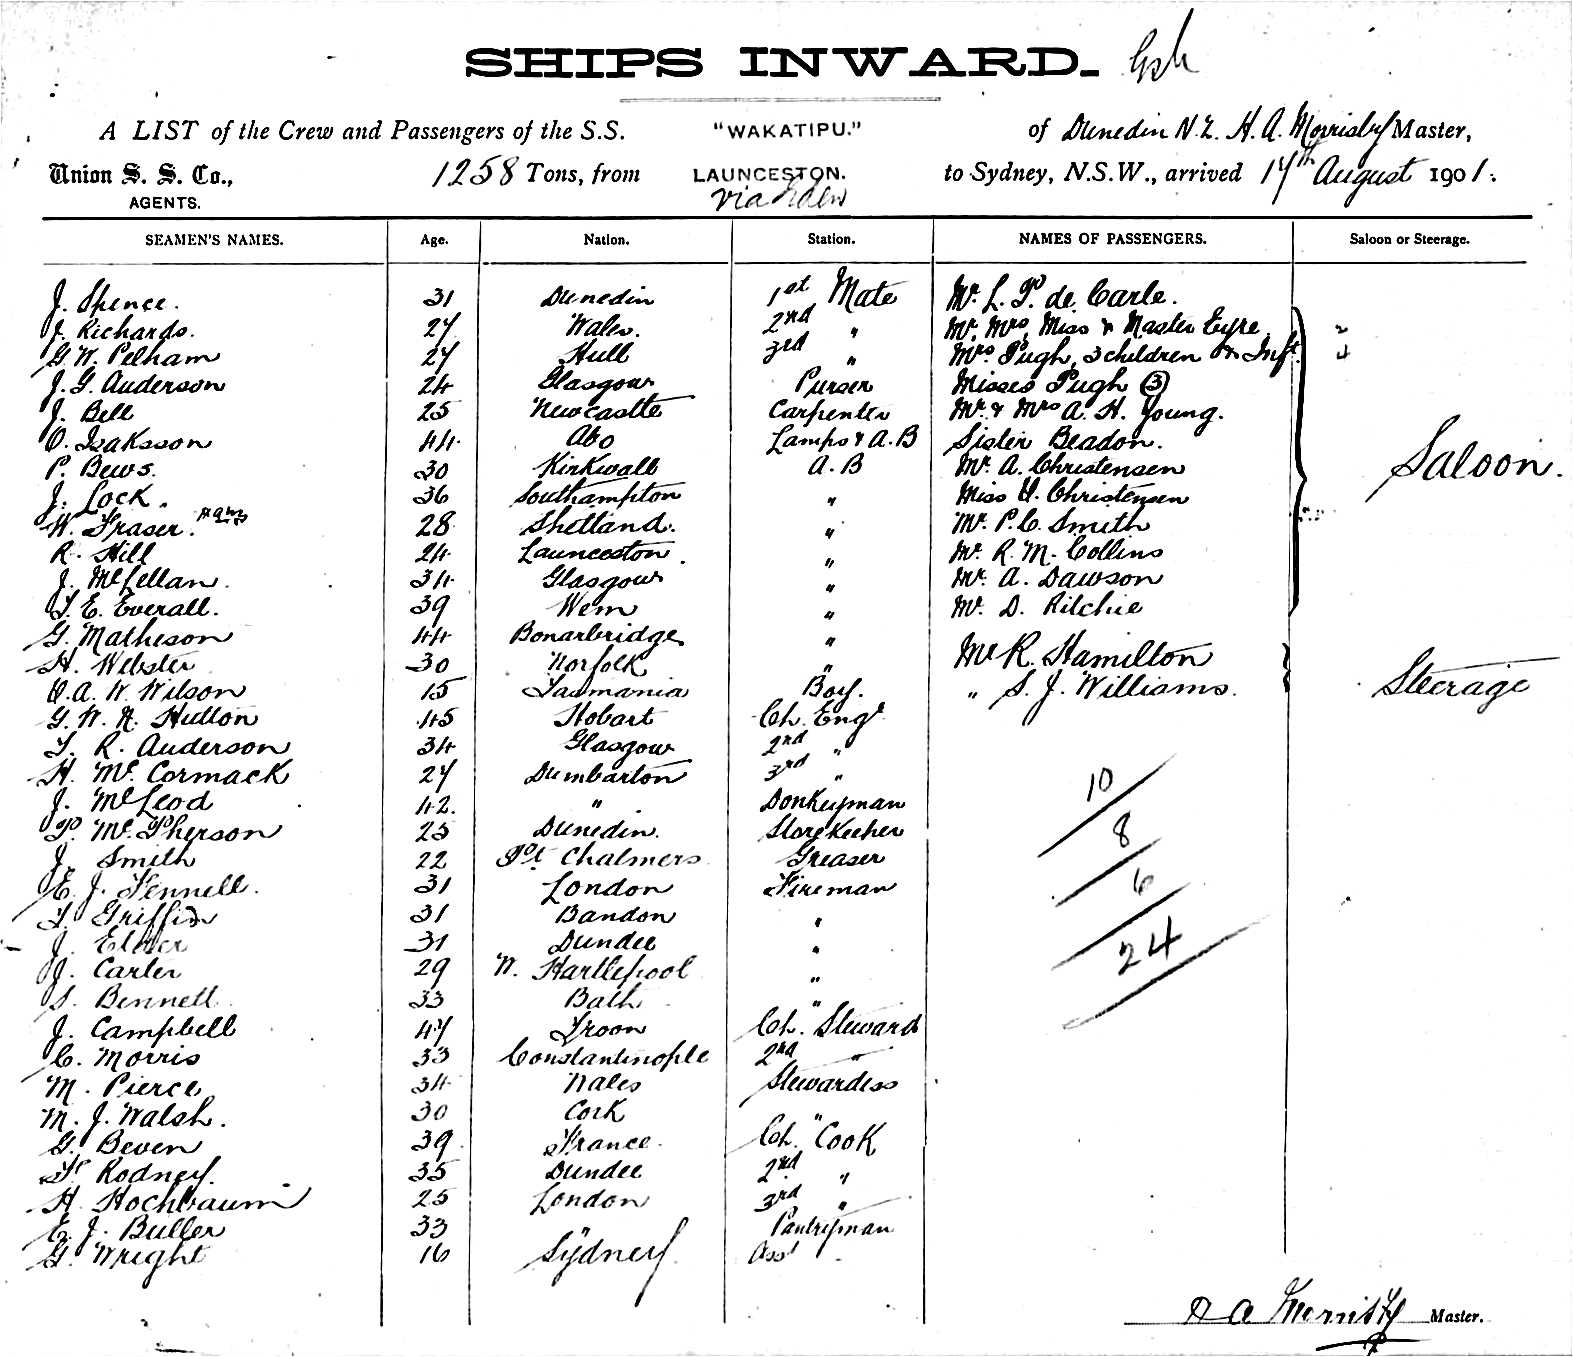 SHIPS INWARD.
A LIST of the Crew and Passengers of the S.S. "WAKATIPU." of Dunedin N.Z. H. A. Morrisby Master,
Union S. S. Co., 1258 Tons, from LAUNCESTON. to Sydney, N.S.W., arrived 14th August 1901.
AGENTS. via Eden
SEAMEN'S NAMES. Age. Nation. Station. NAMES OF PASSENGERS. Saloon or Steerage.
J. Spence. 31 Dunedin 1st Mate Mr. L. P. de Carle.
J. Richards. 27 Wales. 2nd " Mr. Mrs, Miss & Master Eyre 2
G. W. Pelham 27 Hull 3rd " Mrs. Pugh, 3 children & Inft. 4
J. G. Anderson 24 Glasgow Purser Misses Pugh (3)
J. Bell 25 Newcastle Carpenter Mr. & Mrs A. H. Young.
O. Isaksson 44 Abo Lamps & A.B Sister Beadon.
P. Bews. 30 Kirkwall A.B Mr. A. Christensen Saloon.
J. Lock. 36 Southampton " Miss H. Christensen
W. Fraser. 28 Shetland. " Mr. P. C. Smith
R. Hill 24 Launceston. " Mr. R. M. Collins
J. McLellan. 34 Glasgow " Mr. A. Dawson
T. E. Everall. 39 Wem " Mr. D. Ritchie
G. Matheson 44 Bonarbridge "
H. Webster 30 Norfolk " Mr R. Hamilton
O. A. W. Wilson 15 Tasmania Boy. " S. J. Williams. Steerage
G. W. R. Hutton 45 Hobart Ch. Engr.
T. R. Anderson 34 Glasgow 2nd "
H. Mc. Cormack 27 Dumbarton 3rd " 10
J. McLeod 42. " Donkeyman
P. Mc. Pherson 25 Dunedin. Storekeeper 8
J. Smith 22 Pt. Chalmers Greaser
E. J. Fennell. 31 London Fireman 6
T. Griffin 31 Bandon "
J. Elder 31 Dundee " 24
J. Carter 29 W. Hartlepool "
S. Bennett 33 Bath "
J. Campbell 47 Troon Ch. Steward
C. Morris 33 Constantinople 2nd "
M. Pierce 34 Wales Stewardess
M. J. Walsh. 30 Cork "
G. Beven 39 France. Ch. Cook
F. Rodney. 35 Dundee 2nd "
H. Hochbaum 25 London 3rd "
E. J. Buller 33 " Pantryman
G. Wright 16 Sydney Asst
H A Morrisby Master.